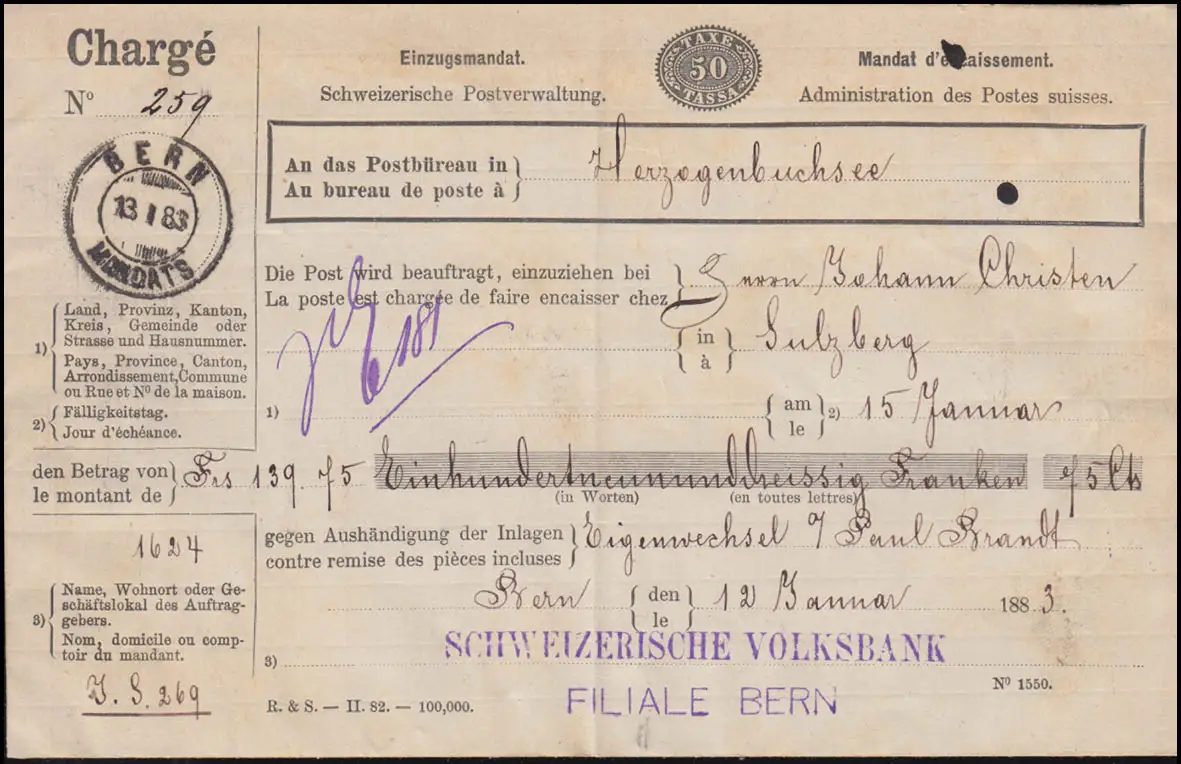 Chargé
Nº 259
BERN
13 I 83
MANDATS
Einzugsmandat.
Schweizerische Postverwaltung.
TAXE
50
TASSA
Mandat d'encaissement.
Administration des Postes suisses.
An das Postbüreau in
Au bureau de poste à
Herzogenbuchsee
Die Post wird beauftragt, einzuziehen bei
La poste est chargée de faire encaisser chez
Herrn Johann Christen
in
à
Sulzberg
1) Land, Provinz, Kanton,
Kreis, Gemeinde oder
Strasse und Hausnummer.
Pays, Province, Canton,
Arrondissement, Commune
ou Rue et Nº de la maison.
2) Fälligkeitstag.
Jour d'échéance.
181
1)
am
le
2) 15 Januar
den Betrag von
le montant de
Frs 139. 75 Einhundertneununddreissig Franken 75 Cts
(in Worten) (en toutes lettres)
1624
gegen Aushändigung der Inlagen
contre remise des pièces incluses
Eigenwechsel Paul Brandt
Bern den
le
12 Januar 1883.
3) Name, Wohnort oder Ge-
schäftslokal des Auftrag-
gebers.
Nom, domicile ou comp-
toir du mandant.
3) SCHWEIZERISCHE VOLKSBANK
FILIALE BERN
J. S. 269
R. & S. — II. 82. — 100,000.
Nº 1550.